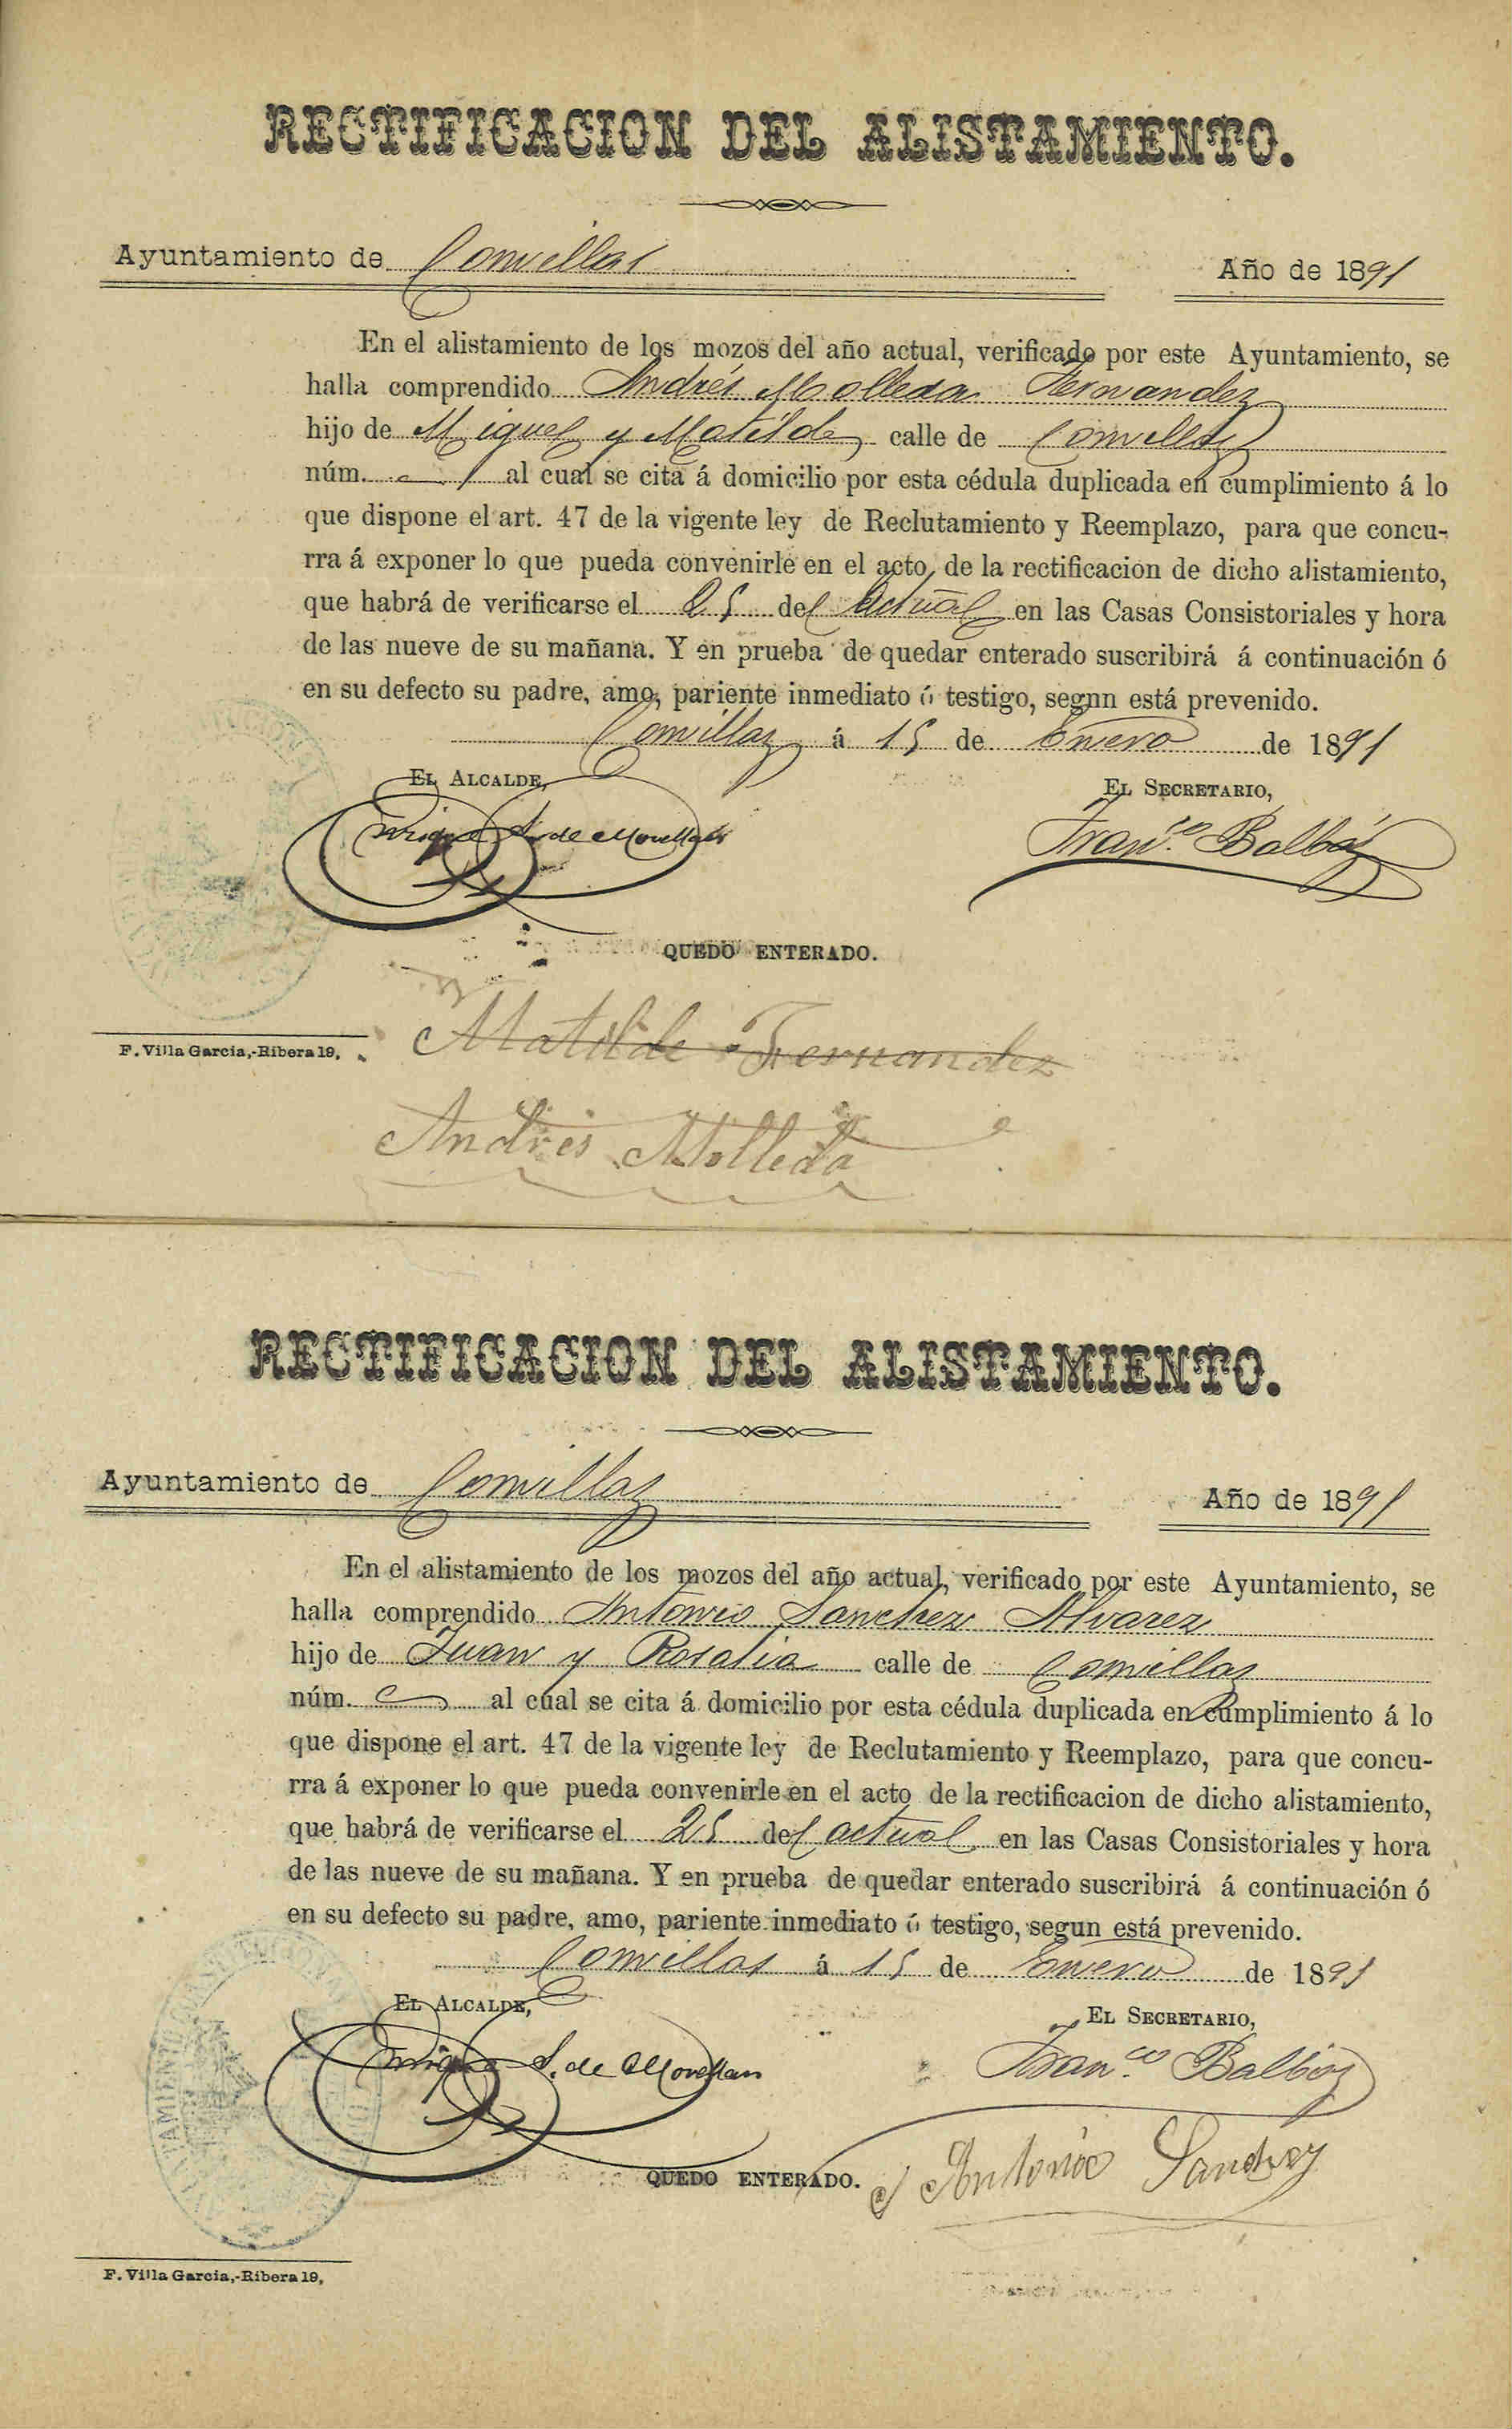 RECTIFICACION DEL ALISTAMIENTO.
Ayuntamiento de Comillas Año de 1891
En el alistamiento de los mozos del año actual, verificado por este Ayuntamiento, se
halla comprendido Andrés Molleda Fernandez
hijo de Miguel y Matilde calle de Comillas
núm. al cual se cita á domicilio por esta cédula duplicada en cumplimiento á lo
que dispone el art. 47 de la vigente ley de Reclutamiento y Reemplazo, para que concu-
rra á exponer lo que pueda convenirle en el acto de la rectificacion de dicho alistamiento,
que habrá de verificarse el 25 del actual en las Casas Consistoriales y hora
de las nueve de su mañana. Y en prueba de quedar enterado suscribirá á continuación ó
en su defecto su padre, amo, pariente inmediato ó testigo, segun está prevenido.
Comillas á 15 de Enero de 1891
EL ALCALDE,
EL SECRETARIO,
Enrique S. de Movellan
Fran.co Balbás
QUEDO ENTERADO.
F. Villa Garcia,-Ribera 19,
Matilde Fernandez
Andres Molleda
RECTIFICACION DEL ALISTAMIENTO.
Ayuntamiento de Comillas Año de 1891
En el alistamiento de los mozos del año actual, verificado por este Ayuntamiento, se
halla comprendido Antonio Sanchez Alvarez
hijo de Juan y Rosalia calle de Comillas
núm. al cual se cita á domicilio por esta cédula duplicada en cumplimiento á lo
que dispone el art. 47 de la vigente ley de Reclutamiento y Reemplazo, para que concu-
rra á exponer lo que pueda convenirle en el acto de la rectificacion de dicho alistamiento,
que habrá de verificarse el 25 del actual en las Casas Consistoriales y hora
de las nueve de su mañana. Y en prueba de quedar enterado suscribirá á continuación ó
en su defecto su padre, amo, pariente inmediato ó testigo, segun está prevenido.
Comillas á 15 de Enero de 1891
EL ALCALDE,
EL SECRETARIO,
Enrique S. de Movellan
Fran.co Balbás
QUEDO ENTERADO.
Antonio Sanchez
F. Villa Garcia,-Ribera 19,